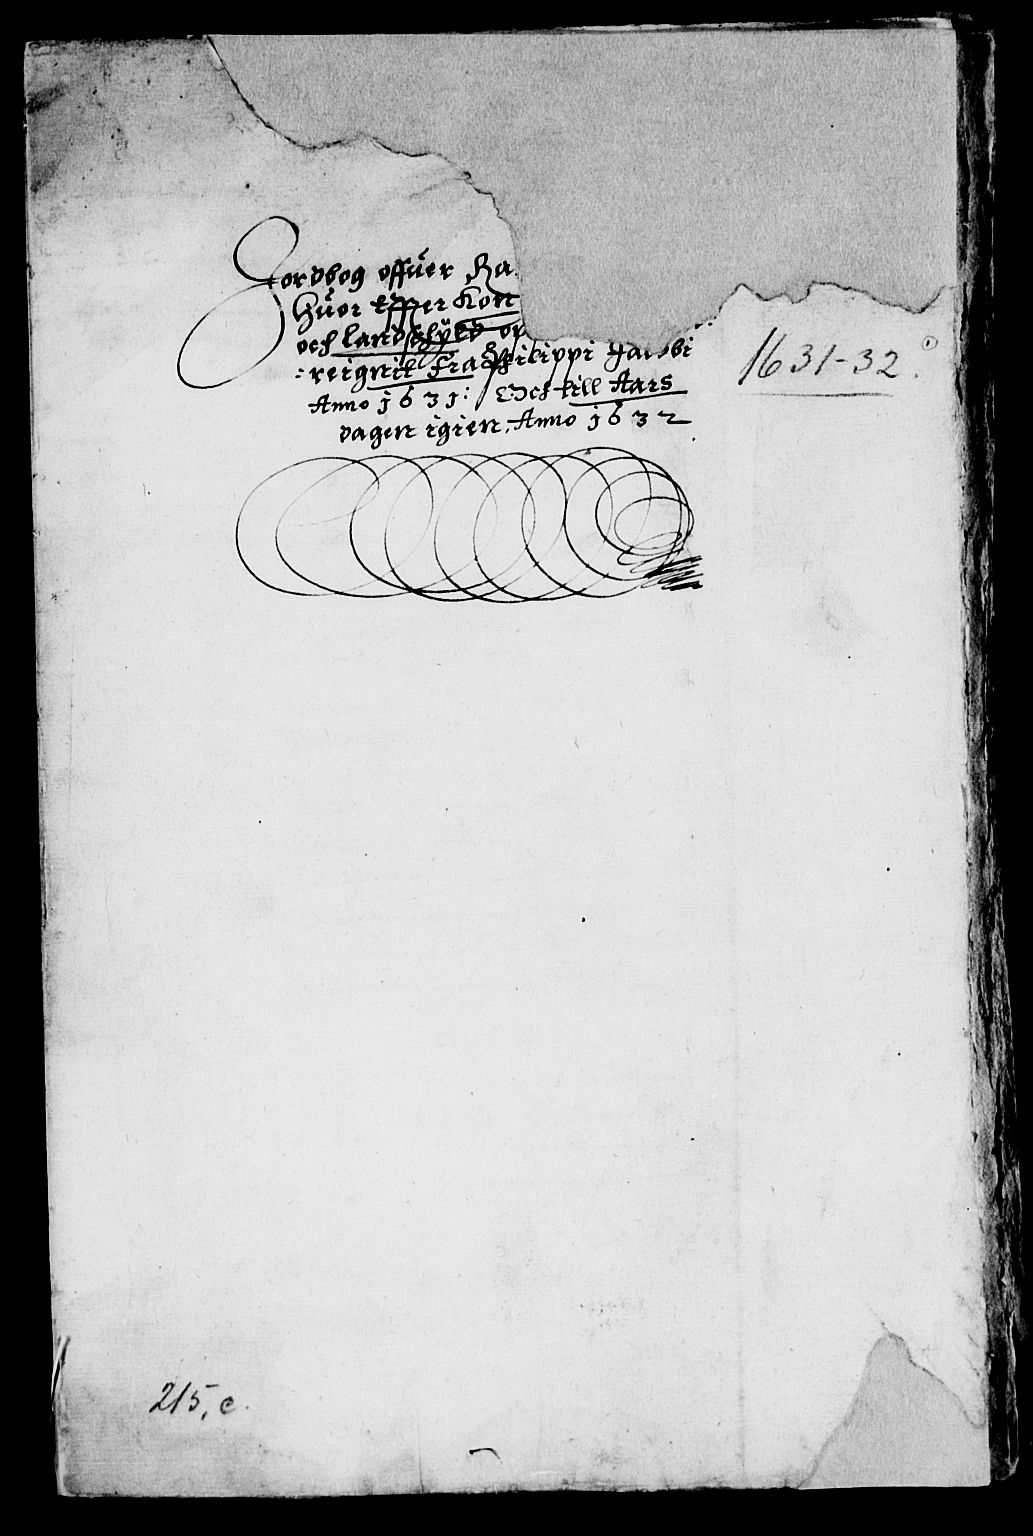 Jordbog offuer Ra
Huor effter Kon
och Landschyld op
:reignit Fra Philippi Jacobi
Anno 1631: Och till Aars
dagen igien, Anno 1632
1631-32.
215, c.